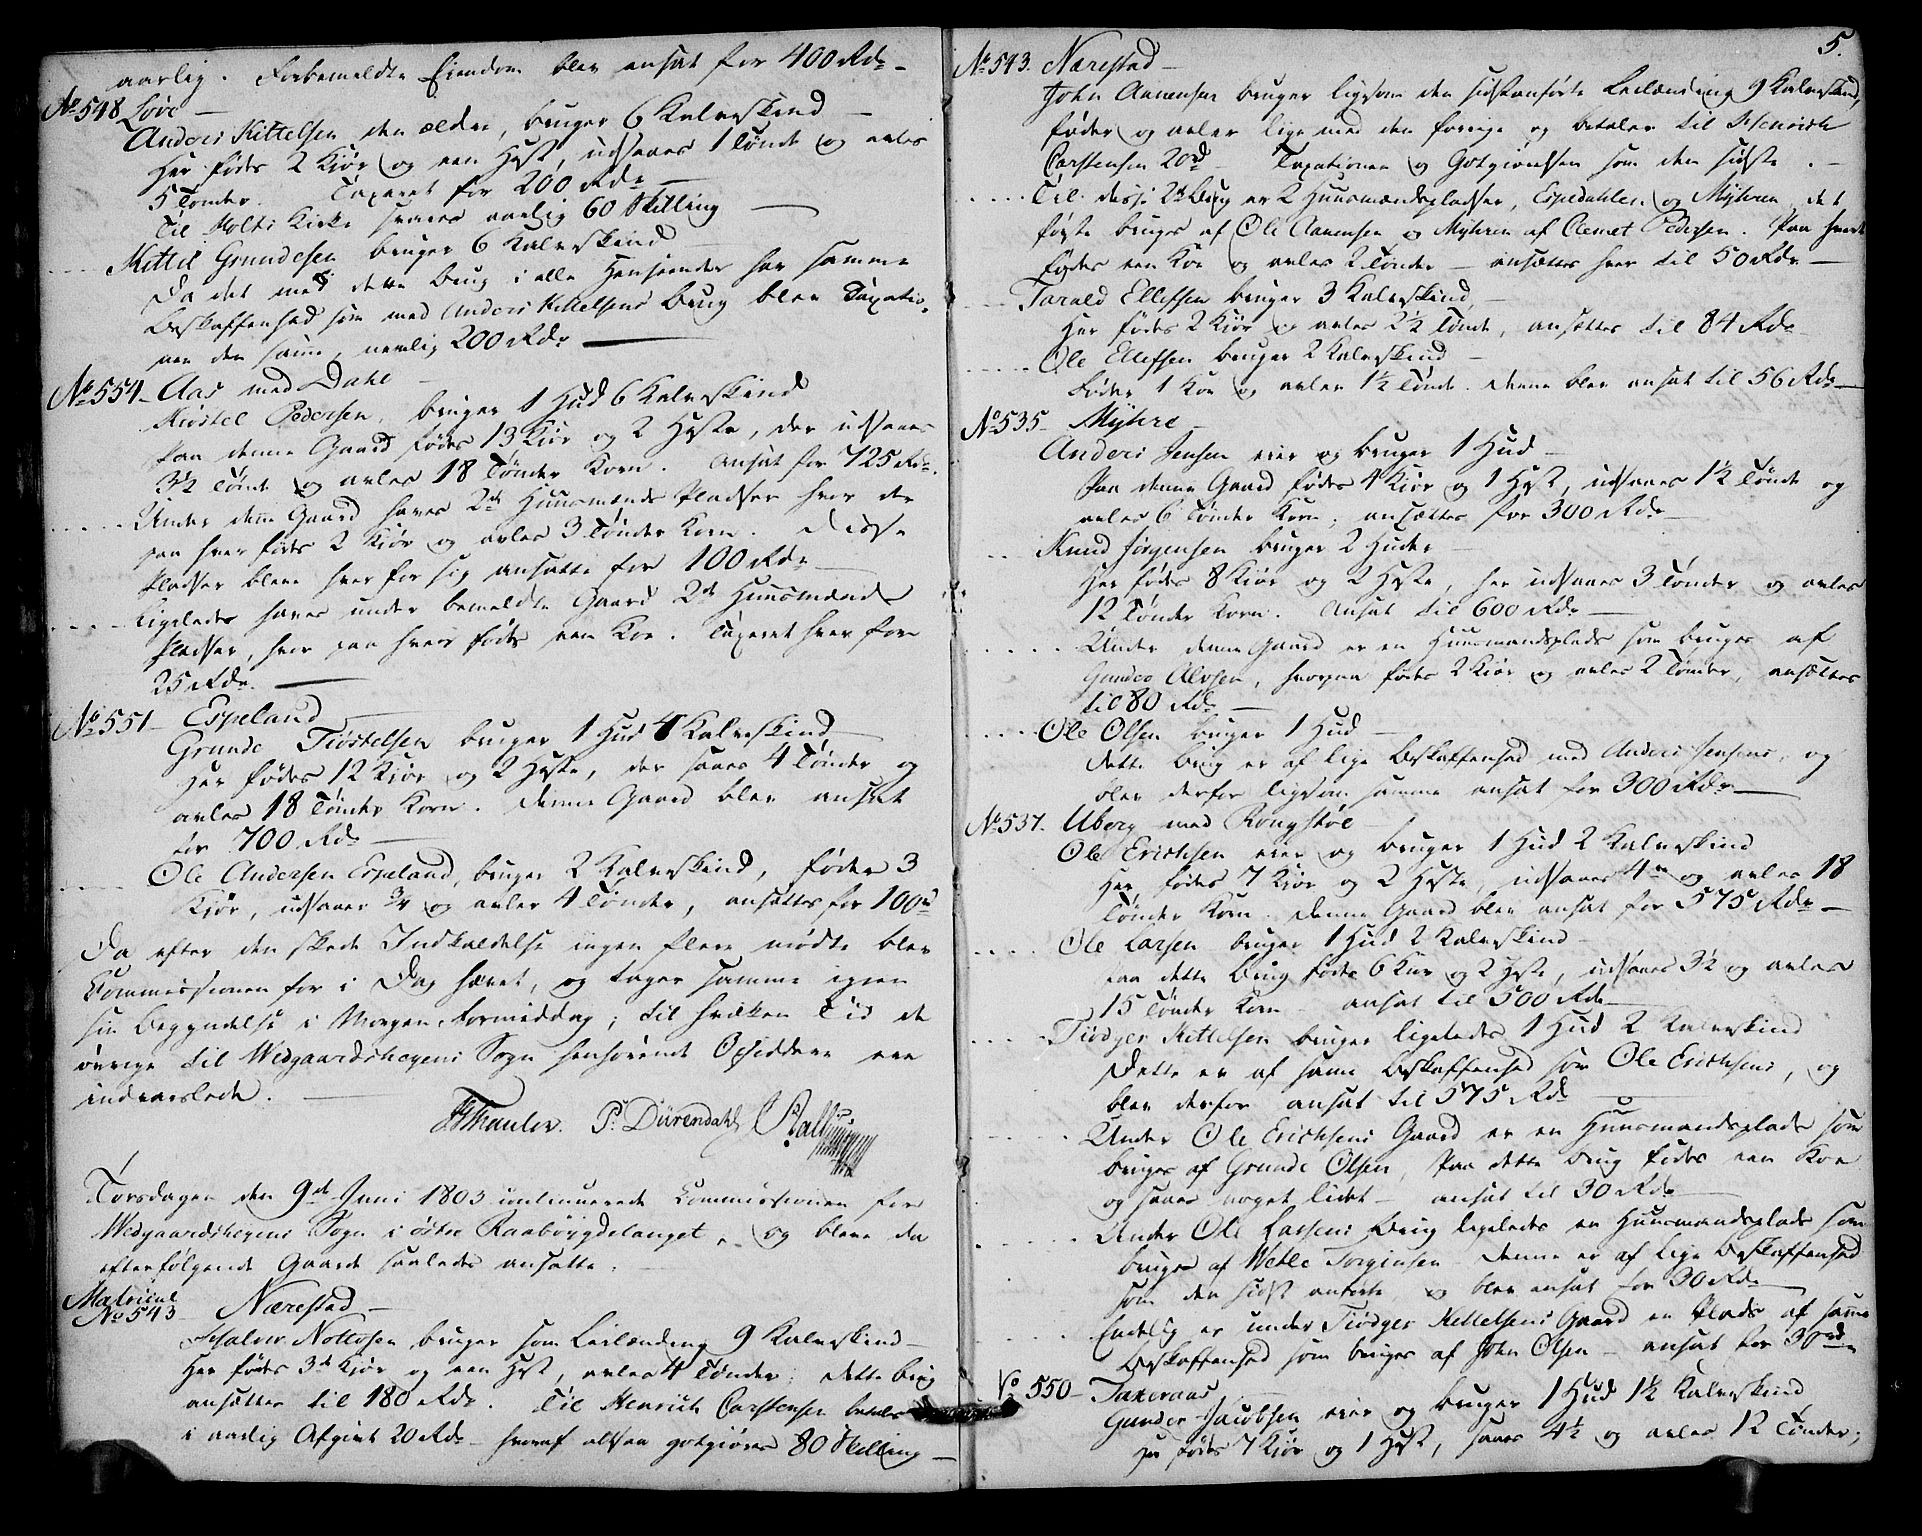 aarlig. Forbemeldte Eiendom blev ansat for 400 Rdr –
No 548 Løve –
Anders Kittelsen den ældre, bruger 6 Kalvskind –
Her fødes 2 Kiør og een Hest, udsaaes 1 Tønde og avles
5 Tønder. Taxeret for 200 Rdr –
Til Holts Kirke svares aarlig 60 Skilling –
Kittil Grundesen bruger 6 Kalvskind
Da det med dette Brug i alle Henseender har samme
Beskaffenhed som med Anders Kittelsens Brug blev Taxatio-
nen den samme, nemlig 200 Rdr –
No 554 – Aas med Dahl –
Kiøstel Pedersen, bruger 1 Hud 6 Kalvskind
Paa denne Gaard fødes 13 Kiør og 2 Heste, der udsaaes
3½ Tønde og avles 18 Tønder Korn. Ansat for 725 Rdr.
Under denne Gaard haves 2de Huusmands Pladser hvor der
paa hver fødes 2 Kiør og avles 3 Tønder Korn. Disse
Pladser bleve hver for sig ansatte for 100 Rdr –
Ligeledes haves under bemeldte Gaard 2de Huusmænds
Pladser, hvor paa hver fødes een Koe. Taxeret hver for
25 Rdr. –
No 551 – Espeland –
Grunde Tiøstelsen bruger 1 Hud 4 Kalvskind –
Her fødes 12 Kiør og 2 Heste, der saaes 4 Tønder og
avles 18 Tønder Korn. Denne Gaard blev ansat
for 700 Rdr –
Ole Andersen Espeland, bruger 2 Kalvskind, føder 3
Kiør, udsaaer ¾ og avler 4 Tønder, ansættes for 100 rd
Da efter den skede Indkaldelse ingen flere mødte blev
Commissionen for i Dag hævet, og tager samme igien
sin Begyndelse i Morgen Formiddag; til hvilken Tid de
øvrige til Wedgaardsheyens Sogn henhørende Opsiddere ere
indvarslede. –
P. Dürendahl
Torsdagen den 9de Juni 1803 continuerede Commissionen for
Wedgaardsheyens Sogn i østre Raabøygdelauget, og bleve da
efterfølgende Gaarde saaledes ansatte: –
Matricul
No 543 – Nærestad –
Halvor Nottosen bruger som Leilænding 9 Kalvskind –
Her fødes 3de Kiør og een Hest, avles 4 Tønder; dette brug
ansættes til 180 Rdr. Til Henrich Carstensen betales
i aarlig Afgivt 20 Rdr – hvoraf altsaa godtgiøres 80 Skilling –
5.
No 543. Nærestad –
John Aanensen bruger ligesom den sidstanførte Leilænding 9 Kalvskind,
føder og avler lige med den forrige og betaler til Henrich
Carstensen 20 rd – Taxationen og Gotgiørelsen som den sidste. –
Til disse 2de Brug er 2 Huusmandspladser, Espedahlen og Myhren, det
første bruges af Ole Aanensen og Myhren af Clemet Pedersen. Paa hvert
fødes een Koe og avles 2 Tønder – ansættes hver til 50 Rdr –
Tarald Ellefsen bruger 3 Kalvskind, –
Her fødes 2 Kiør og avles 2½ Tønde, ansættes til 84 Rdr
Ole Ellefsen bruger 2 Kalvskind –
Føder 1 Koe og avler 1½ Tønde. Denne blev ansat til 56 Rdr –
No 535 – Myhre –
Anders Jensen eier og bruger 1 Hud –
Paa denne Gaard fødes 4 Kiør og 1 Hest, udsaaes 1½ Tønde og
avles 6 Tønder Korn; ansættes for 300 Rdr –
Knud Jørgensen bruger 2 Huder –
Her fødes 8 Kiør og 2 Heste, her udsaaes 3 Tønder og avles
12 Tønder Korn. Ansat til 600 Rdr –
Under denne Gaard er en Huusmandsplads som bruges af
Gunder Alvsen, hvorpaa fødes 2 Kiør og avles 2 Tønder, ansættes
til 80 Rdr –
Ole Olsen bruger 1 Hud –
Dette brug er af lige Beskaffenhed med Anders Jensens, og
blev derfor ligesom samme ansat for 300 Rdr –
No 537. Uberg med Rongstøe –
Ole Erichsen eier og bruger 1 Hud 2 Kalvskind
Her fødes 7 Kiør og 2 Heste, udsaaes 4re og avles 18
Tønder Korn. Denne Gaard blev ansat for 575 Rdr –
Ole Larsen bruger 1 Hud 2 Kalvskind –
Paa dette brug fødes 6 Kiør og 2 Heste, udsaaes 3½ og avles
15 Tønder Korn – ansat til 500 Rdr –
Tiødger Kittelsen bruger ligeledes 1 Hud 2 Kalvskind
Dette er af samme Beskaffenhed som Ole Erichsens, og
blev derfor ansat til 575 Rdr –
Under Ole Erichsens Gaard er en Huusmandsplads som
bruges af Grunde Olsen, Paa dette brug fødes een Koe
og saaes noget lidet – ansat til 30 Rdr –
Under Ole Larsens Brug ligeledes en Huusmandsplads som
bruges af Wetle Torginsen – denne er af lige Beskaffenhed
som den sidst anførte, og blev ansat for 30 Rdr –
Endelig er under Tiødger Kittelsens Gaard en Plads af samme
Beskaffenhed som bruges af John Olsen – ansat for 30 rdr
No 550 – Taxeraas –
Gunder Jacobsen eier og bruger 1 Hud 1½ Kalvskind
Her fødes 7 Kiør og 1 Hest, saaes 4½ og avles 12 Tønder;